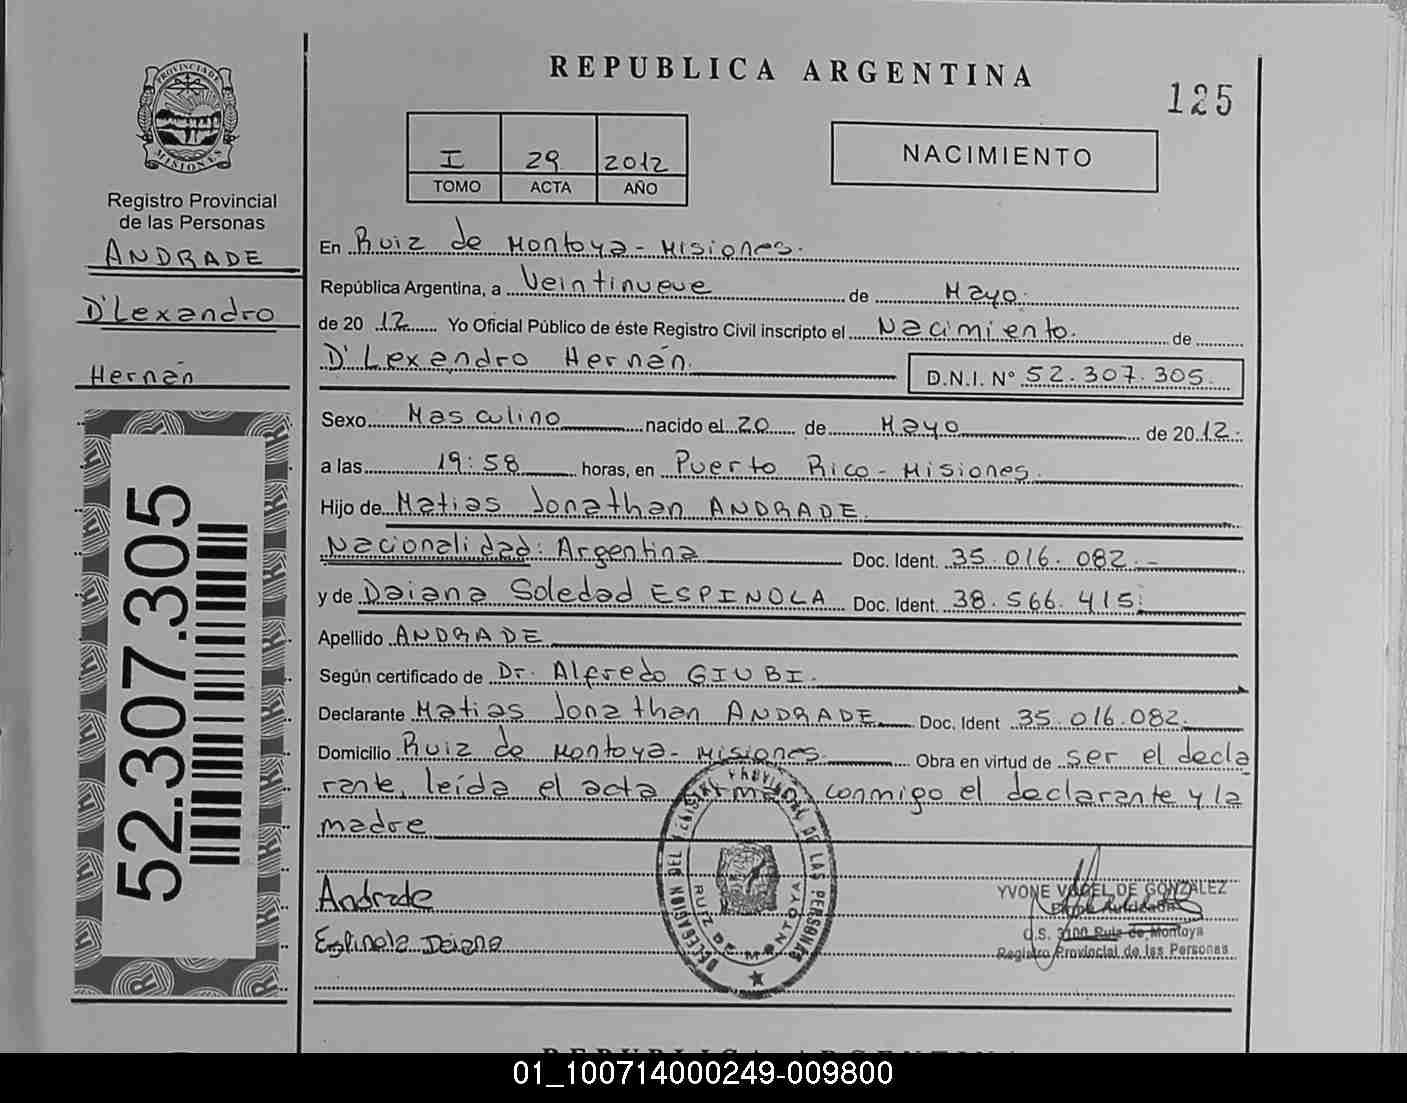 REPUBLICA ARGENTINA
125
PROVINCIA DE MISIONES
Registro Provincial
de las Personas
ANDRADE
D'Lexandro
Hernán
52.307.305
I 29 2012
TOMO ACTA AÑO
NACIMIENTO
En Ruiz de Montoya - Misiones.
República Argentina, a Veintinueve de Mayo.
de 20 12 Yo Oficial Público de éste Registro Civil inscripto el Nacimiento. de
D'Lexandro Hernán. D.N.I. N° 52.307.305.
Sexo Masculino nacido el 20 de Mayo de 20 12.
a las 19:58 horas, en Puerto Rico - Misiones.
Hijo de Matias Jonathan ANDRADE.
Nacionalidad: Argentina Doc. Ident. 35.016.082.-
y de Daiana Soledad ESPINOLA Doc. Ident. 38.566.415.
Apellido ANDRADE
Según certificado de Dr. Alfredo GIUBI.
Declarante Matias Jonathan ANDRADE Doc. Ident 35.016.082.
Domicilio Ruiz de Montoya - Misiones. Obra en virtud de ser el decla
rante, leída el acta conmigo el declarante y la
madre
DELEGACION DEL REGISTRO PROVINCIAL DE LAS PERSONAS
RUIZ DE MONTOYA
Andrade
Espinola Daiana
YVONE VOGEL DE GONZALEZ
O.S. 3100 Ruiz de Montoya
Registro Provincial de las Personas
01_100714000249-009800